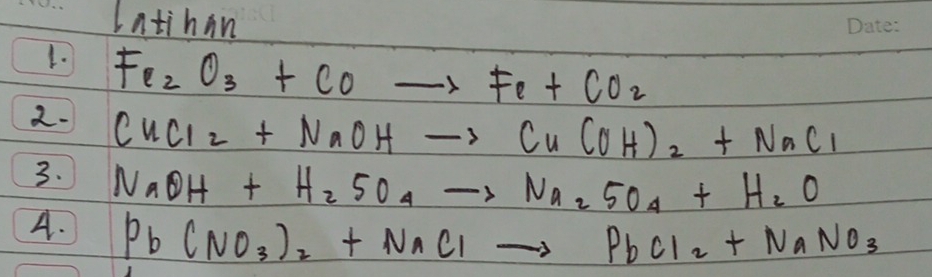 Latihan
Date:
1. Fe₂O₃ + CO → Fe + CO₂
2. CuCl₂ + NaOH → Cu(OH)₂ + NaCl
3. NaOH + H₂SO₄ → Na₂SO₄ + H₂O
4. Pb(NO₃)₂ + NaCl → PbCl₂ + NaNO₃